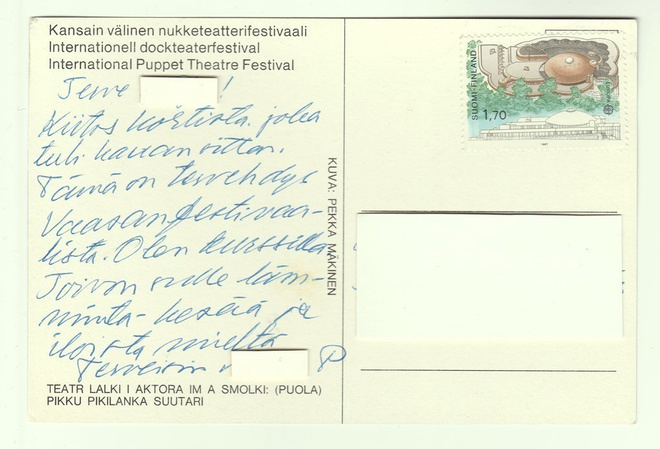 Kansain välinen nukketeatterifestivaali
Internationell dockteaterfestival
International Puppet Theatre Festival
Terve !
Kiitos kortista joka
tuli kauan sitten.
Tämä on tervehdys
Vaasan festivaa-
lista. Olen kurssilla
Toivon sulle läm-
mintä kesää ja
iloista mieltä
Terveisin
KUVA: PEKKA MÄKINEN
TEATR LALKI I AKTORA IM A SMOLKI: (PUOLA)
PIKKU PIKILANKA SUUTARI
SUOMI-FINLAND
1,70